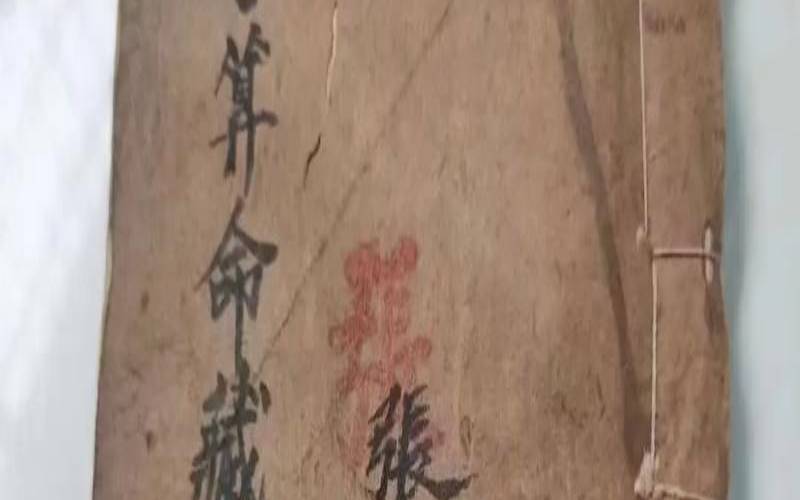 算命藏
張